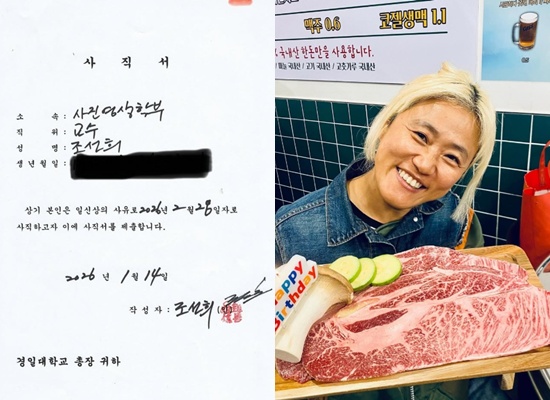 사 직 서
소 속 : 사진영상학부
직 위 : 교수
성 명 : 조선희
생 년 월 일 :
상기 본인은 일신상의 사유로 2026년 2월 28일자로
사직하고자 이에 사직서를 제출합니다.
2026 년 1 월 14 일
작 성 자 : 조선희 (인)
경일대학교 총장 귀하
맥주 0.6
코젤생맥 1.1
국내산 한돈만을 사용합니다.
국내산 / 고기 국내산 / 고춧가루 국내산
Happy
Birthday